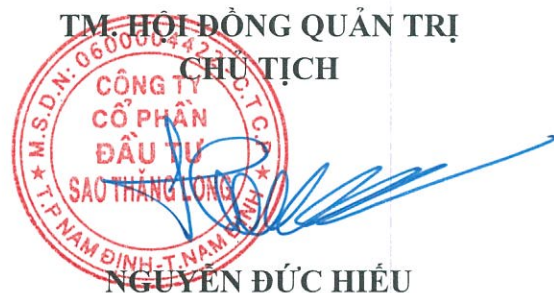 TM. HỘI ĐỒNG QUẢN TRỊ
CHỦ TỊCH
M.S.D.N: 0600004422-C.T.C.P
CÔNG TY
CỔ PHẦN
ĐẦU TƯ
SAO THĂNG LONG
T.P NAM ĐỊNH-T.NAM ĐỊNH
NGUYỄN ĐỨC HIẾU